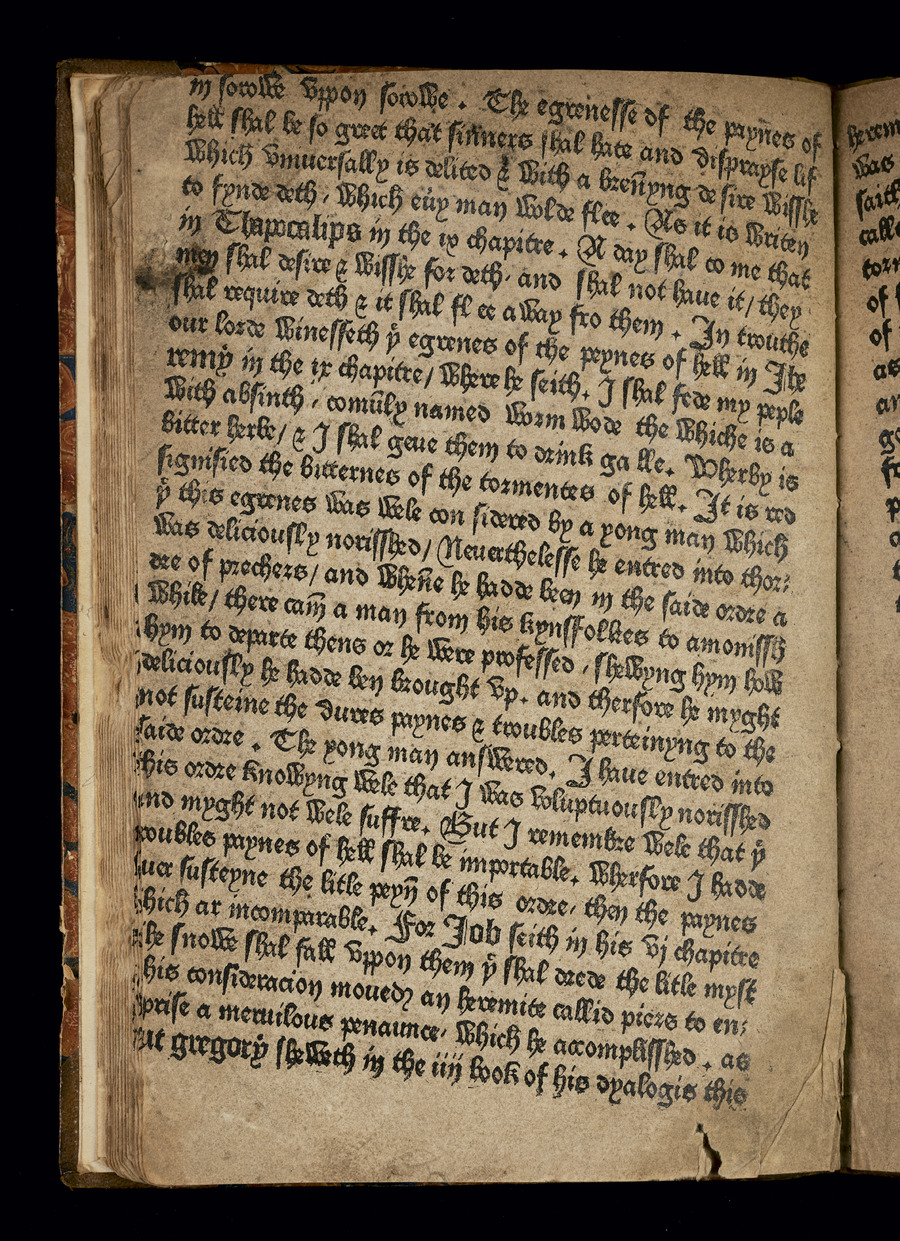 in sorowe vppon sorowe . The egrenesse of the paynes of
hell shal be so greet that sinners shal hate and disprayse lif
Which vniuersally is delited & With a breñyng de sire Wisshe
to fynde deth , Which eũy man wolde flee . As it is Writen
in Thapocalips in the ix chapitre . A day shal co me that
men shal desire & Wisshe for deth , and shal not haue it / they
shal require deth & it shal fl ee aWay fro them . In trouthe
our lorde Winesseth ẏ egrenes of the peynes of hell in Ihe
remẏ in the ix chapitre / Where he seith . I shal fede my peple
With absinth , comũly named Worm Wode the Whiche is a
bitter herbe / & I shal geue them to drink ga lle . Wherby is
signified the bitternes of the tormentes of hell . It is red
ẏ this egrenes Was Wele con sidered by a yong man Which
Was deliciously norisshed / Neuerthelesse he entred into thor:
dre of prechers / and Wheñe he hadde been in the saide ordre a
While / there cam̄ a man from his kynsfolkes to amonissh
hym to departe thens or he Were professed , sheWyng hym hoW
deliciously he hadde ben brought vp . and therfore he myght
not susteine the dures paynes & troubles perteinyng to the
saide ordre . The yong man ansWered . I haue entred into
his ordre knoWyng Wele that I Was voluptuously norisshed
nd myght not Wele suffre . But I remembre Wele that ẏ
roubles paynes of hell shal be inportable . Wherfore I hadde
uer susteyne the litle peyñ of this ordre , then the paynes
hich ar incomparable . For Job seith in his vj chapitre
he snoWe shal fall vppon them ẏ shal drede the litle myst
his consideracion moued an heremite callid piers to en:
prise a meruilous penaunce , Which he accomplisshed . as
ut gregorẏ sheWeth in the iiij book of his dyalogis this

herem
Was
saith
calle
torn
of
of
as